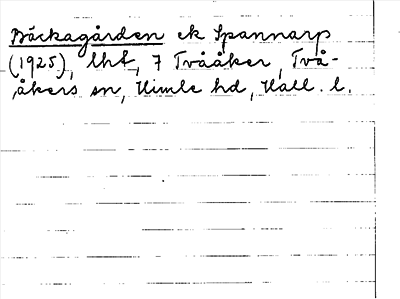 Bäckagården ek Spannarp
(1925), lht, 7 Tvååker, Två-
åkers sn, Himle hd, Hall. l.